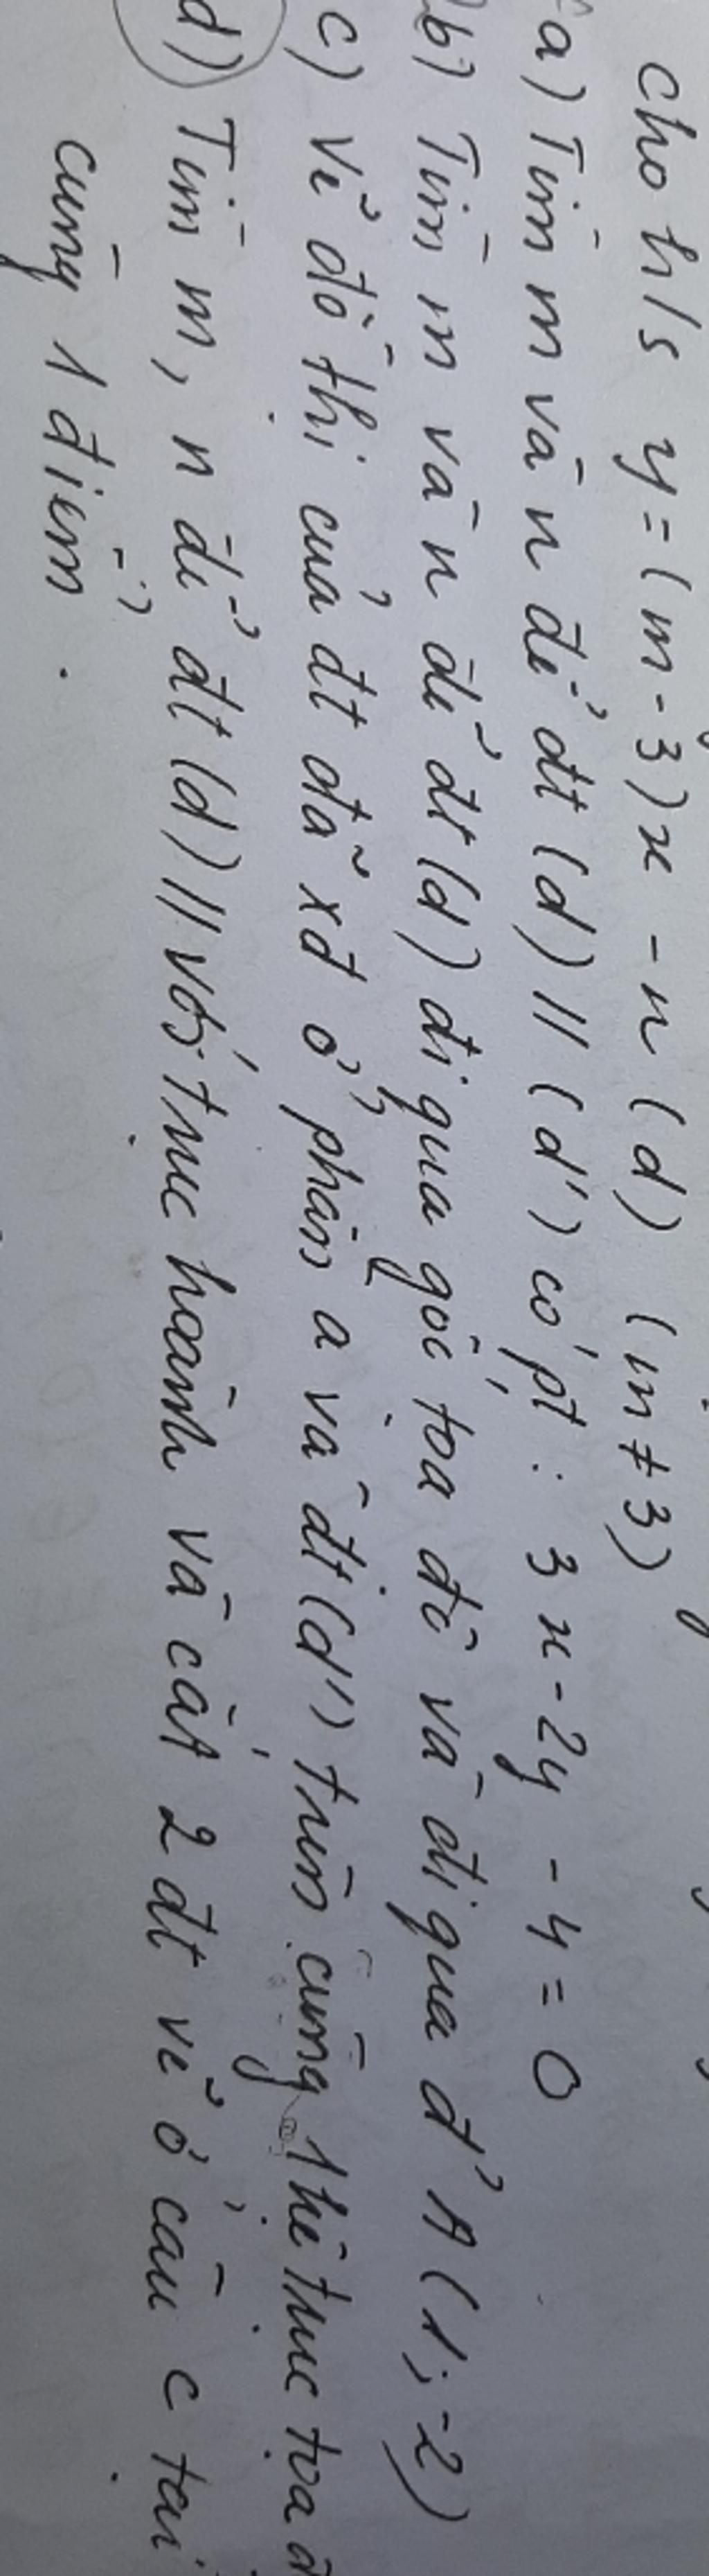 cho h/s y = (m - 3)x - n (d) (m ≠ 3)
a) Tìm m và n để đt (d) // (d') có pt : 3x - 2y - 4 = 0
b) Tìm m và n để đt (d) đi qua gốc tọa độ và đi qua đ' A (1; -2)
c) Vẽ đồ thị của đt đã xđ ở phần a và đt (d') trên cùng 1 hệ trục tọa đ
d) Tìm m, n để đt (d) // với trục hoành và cắt 2 đt vẽ ở câu c tại
cùng 1 điểm.